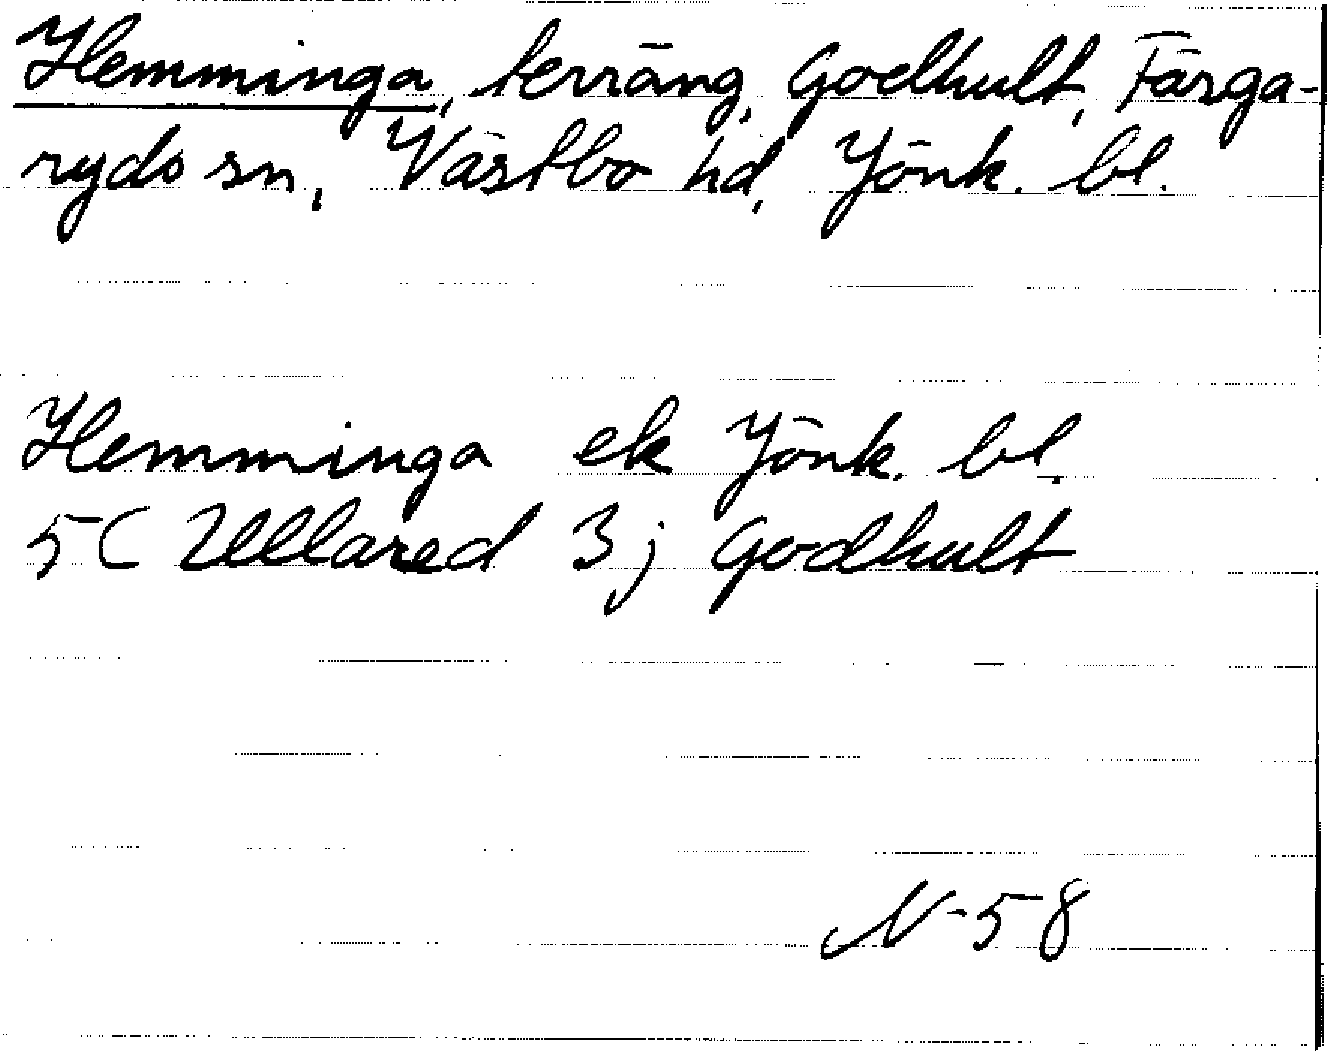 Hemminga, terräng, Godhult, Färga-
ryds sn, Västbo hd, Jönk. bl.
Hemminga ek Jönk. bl.
5C Ullared 3j Godhult
N-58